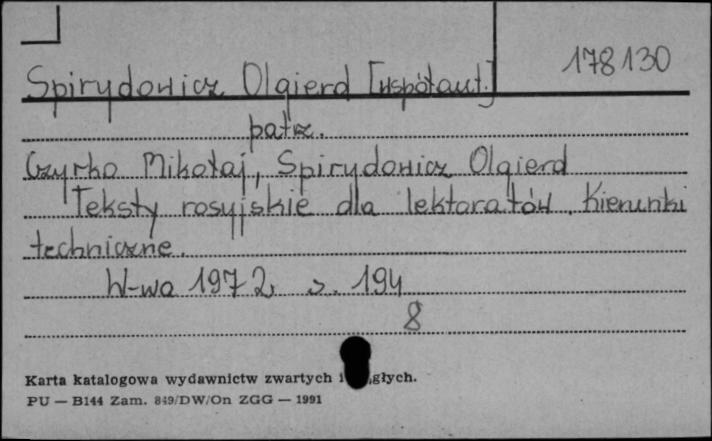 178130
Spirydowicz Olgierd [współaut.]
patrz.
Czyrko Mikołaj, Spirydowicz Olgierd
Teksty rosyjskie dla lektoratów. Kierunki
techniczne.
W-wa 1972 s. 194
8
Karta katalogowa wydawnictw zwartych i głych.
PU — B144 Zam. 849/DW/On ZGG — 1991